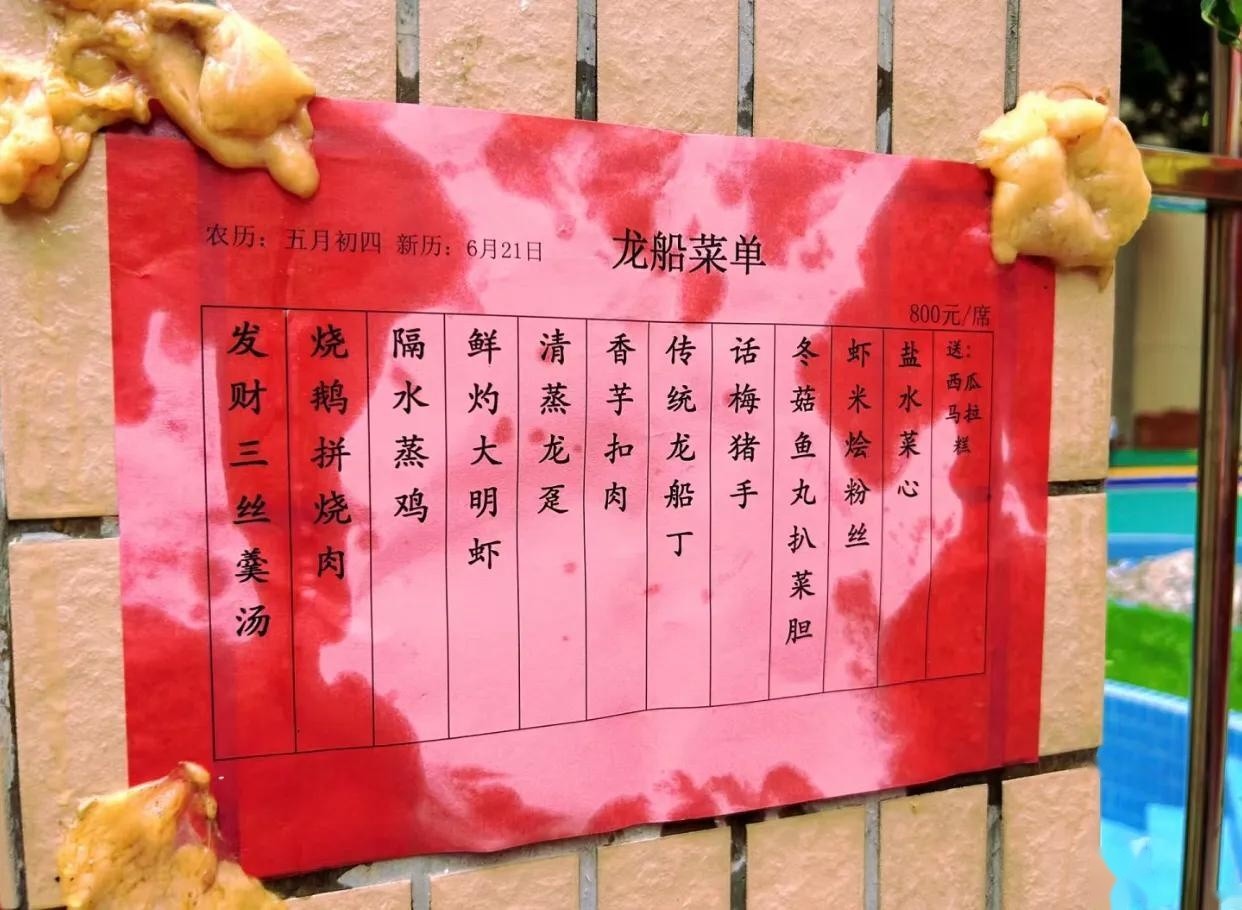 农历：五月初四 新历：6月21日
龙船菜单
800元/席
发财三丝羹汤
烧鹅拼烧肉
隔水蒸鸡
鲜灼大明虾
清蒸龙趸
香芋扣肉
传统龙船丁
话梅猪手
冬菇鱼丸扒菜胆
虾米烩粉丝
盐水菜心
送：
西瓜
马拉
糕